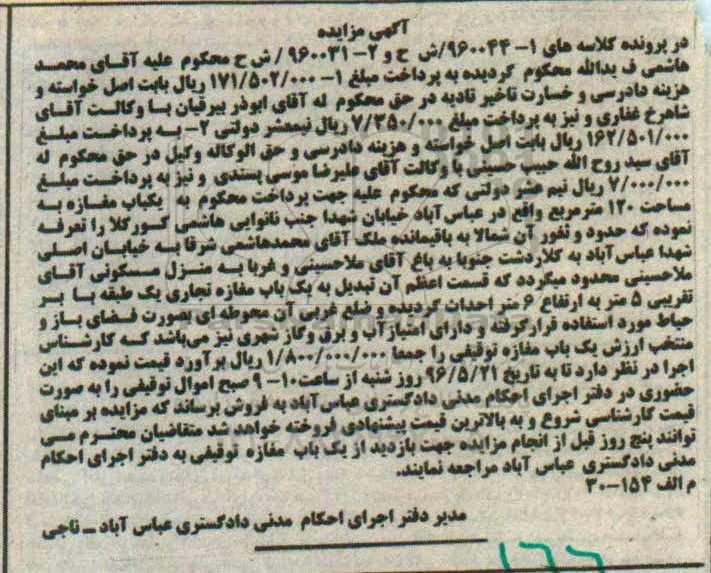 آگهی مزایده
در پرونده کلاسه های ۱- ۹۶۰۰۴۴/ش ح و ۲- ۹۶۰۰۳۱ / ش ح محکوم علیه آقای محمد
هاشمی ف یدالله محکوم گردیده به پرداخت مبلغ ۱- ۱۷۱/۵۰۲/۰۰۰ ریال بابت اصل خواسته و
هزینه دادرسی و خسارت تاخیر تادیه در حق محکوم له آقای ابوذر بیرقیان با وکالت آقای
شاهرخ غفاری و نیز به پرداخت مبلغ ۷/۳۵۰/۰۰۰ ریال نیمعشر دولتی ۲- به پرداخت مبلغ
۱۶۲/۵۰۱/۰۰۰ ریال بابت اصل خواسته و هزینه دادرسی و حق الوکاله وکیل در حق محکوم له
آقای سید روح الله حبیب حسینی با وکالت آقای علیرضا موسی پسندی و نیز به پرداخت مبلغ
۷/۰۰۰/۰۰۰ ریال نیم عشر دولتی که محکوم علیه جهت پرداخت محکوم به یکباب مغازه به
مساحت ۱۲۰ مترمربع واقع در عباس آباد خیابان شهدا جنب نانوایی هاشمی کورکلا را تعرفه
نموده که حدود و ثغور آن شمالا به باقیمانده ملک آقای محمدهاشمی شرقا به خیابان اصلی
شهدا عباس آباد به کلاردشت جنوبا به باغ آقای ملاحسینی و غربا به منزل مسکونی آقای
ملاحسینی محدود میگردد که قسمت اعظم آن تبدیل به یک باب مغازه تجاری یک طبقه با بر
تقریبی ۵ متر به ارتفاع ۶ متر احداث گردیده و ضلع غربی آن محوطه ای بصورت فضای باز و
حیاط مورد استفاده قرارگرفته و دارای امتیازآب و برق وگاز شهری نیز می‌باشد که کارشناس
منتخب ارزش یک باب مغازه توقیفی را جمعا ۱/۸۰۰/۰۰۰/۰۰۰ ریال برآورد قیمت نموده که این
اجرا در نظر دارد تا به تاریخ ۹۶/۵/۲۱ روز شنبه از ساعت۱۰- ۹ صبح اموال توقیفی را به صورت
حضوری در دفتر اجرای احکام مدنی دادگستری عباس آباد به فروش برساند که مزایده بر مبنای
قیمت کارشناسی شروع و به بالاترین قیمت پیشنهادی فروخته خواهد شد متقاضیان محترم می
توانند پنج روز قبل از انجام مزایده جهت بازدید از یک باب مغازه توقیفی به دفتر اجرای احکام
مدنی دادگستری عباس آباد مراجعه نمایند.
م الف ۱۵۴-۳۰
مدیر دفتر اجرای احکام مدنی دادگستری عباس آباد ــ ناجی
۱۶۶